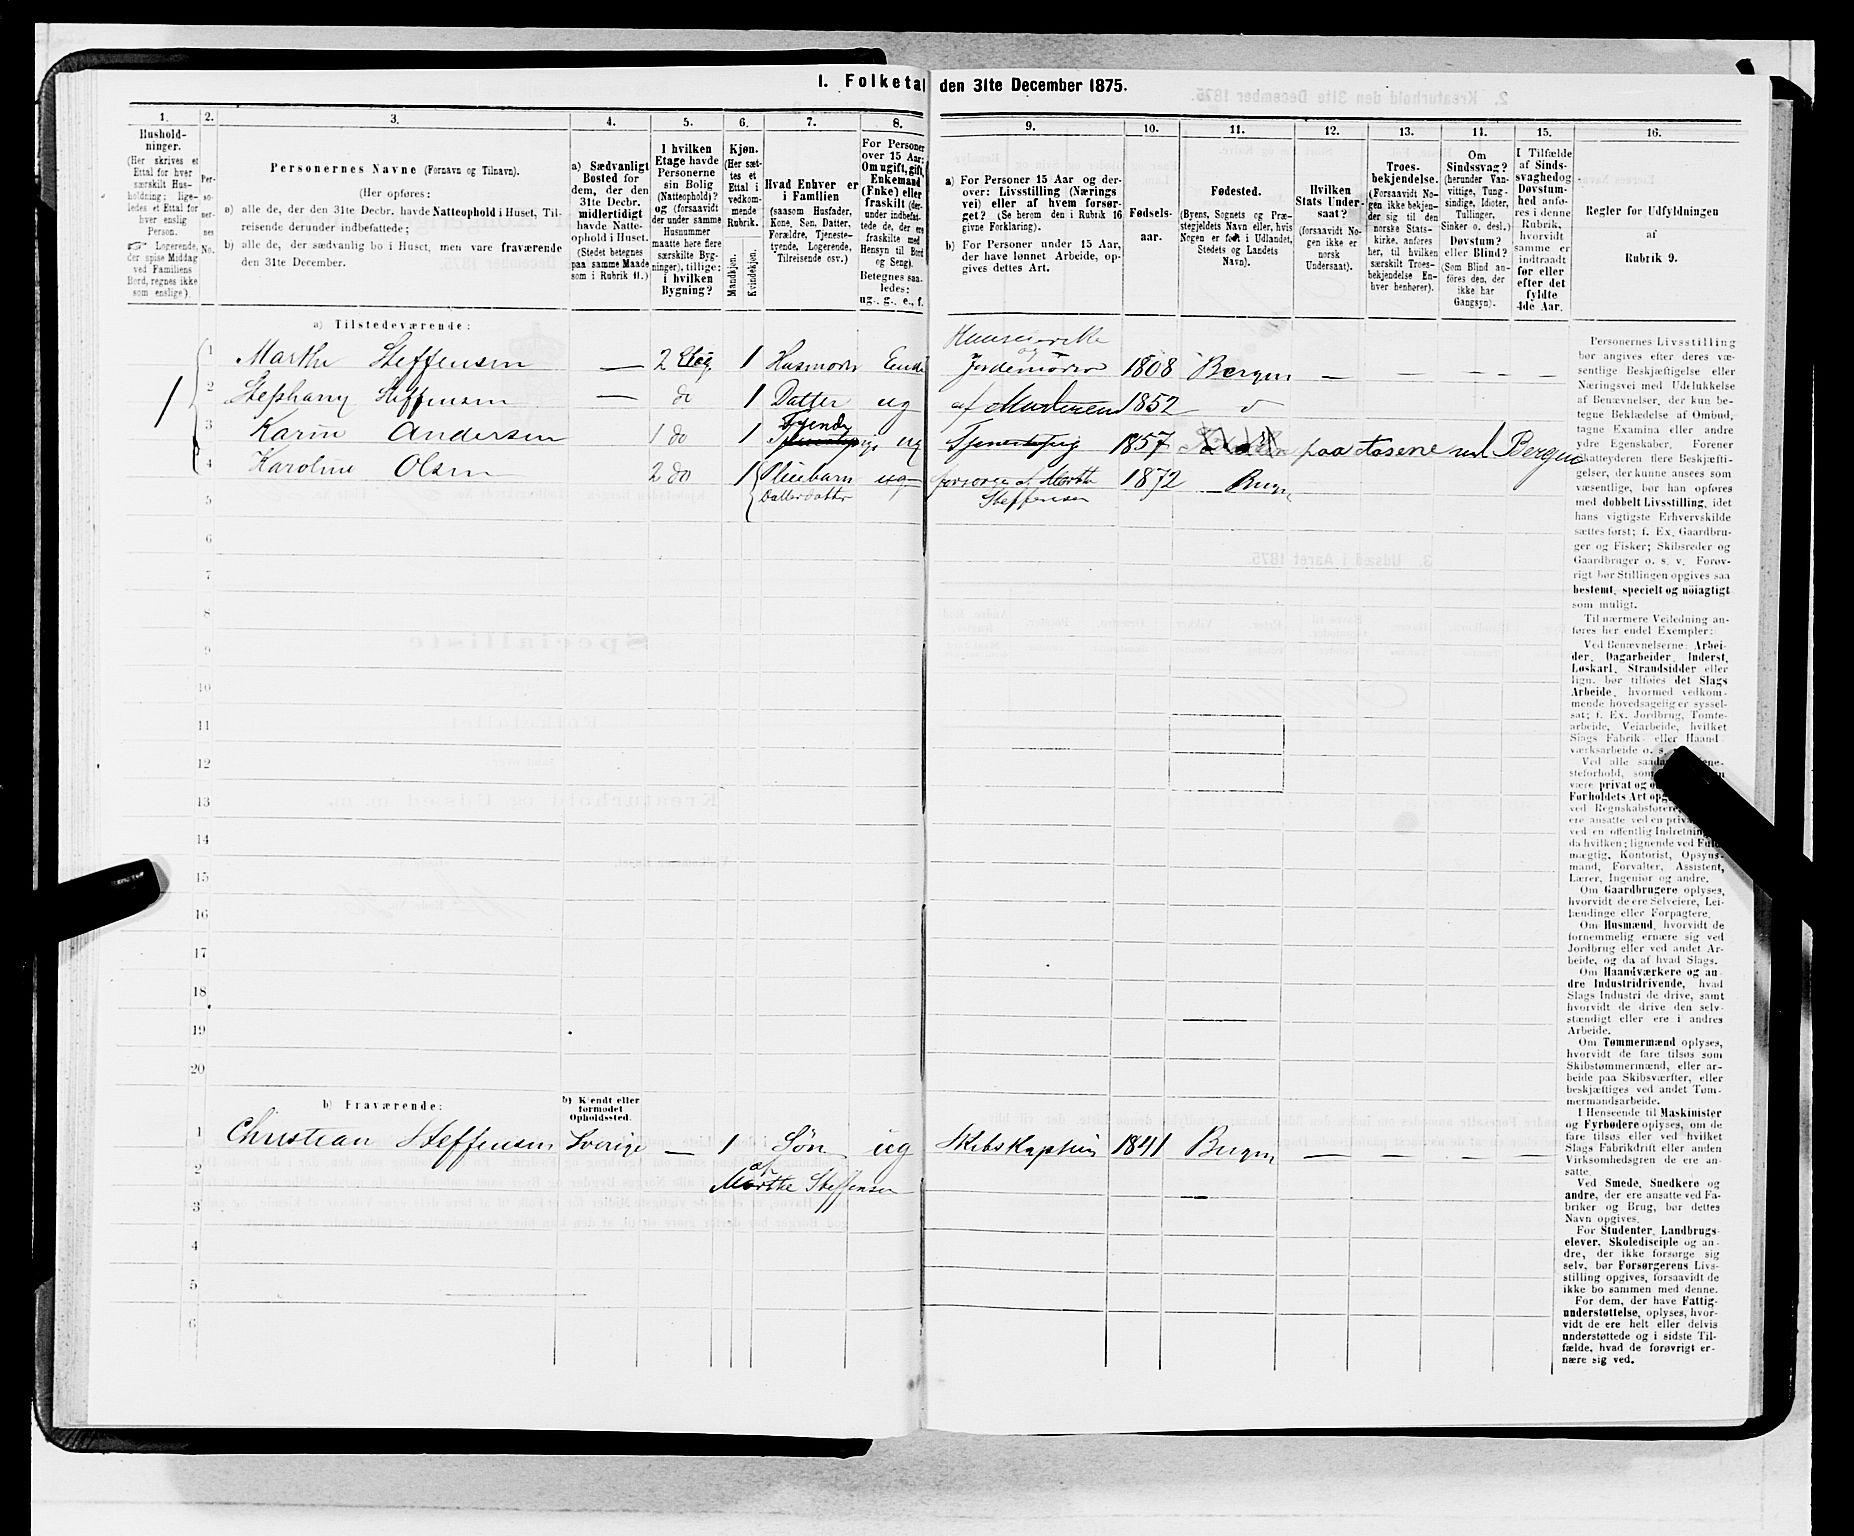 1. Folketal den 31te December 1875.
1.
Hushold-
ninger.
(Her skrives et
Ettal for hver
særskilt Hus-
holdning; lige-
ledes et Ettal for
hver enslig
Person.
Logerende,
der spise Middag
ved Familiens
Bord, regnes ikke
som enslige).
2.
Per-
so-
ner-
nes
No.
3.
Personernes Navne (Fornavn og Tilnavn).
(Her opføres:
a) alle de, der den 31te Decbr. havde Natteophold i Huset, Til-
reisende derunder indbefattede;
b) alle de, der sædvanlig bo i Huset, men vare fraværende
den 31te December.
4.
a) Sædvanligt
Bosted for
dem, der den
31te Decbr.
midlertidigt
havde Natte-
ophold i Huset.
(Stedet betegnes
paa samme Maade
som i Rubrik 11.)
5.
I hvilken
Etage havde
Personerne
sin Bolig
(Natteophold)?
og (forsaavidt
der under samme
Husnummer
maatte høre flere
særskilte Byg-
ninger), tillige:
i hvilken
Bygning?
6.
Kjøn.
(Her sæt-
tes et
Ettal i
vedkom-
mende
Rubrik.
Mandkjøn.
Kvindekjøn.
7.
Hvad Enhver er
i Familien
(saasom Husfader,
Kone, Søn, Datter,
Forældre, Tjeneste-
tyende, Logerende,
Tilreisende osv.)
8.
For Personer
over 15 Aar:
Om ugift, gift,
Enkemand
(Enke) eller
fraskilt (der-
under indbefat-
tede de, der ere
fraskilte med
Hensyn til Bord
og Seng).
Betegnes saa-
ledes:
ug., g., e., f.
9.
a) For Personer 15 Aar og der-
over: Livsstilling (Nærings
vei) eller af hvem forsør-
get? (Se herom den i Rubrik 16
givne Forklaring).
b) For Personer under 15 Aar,
der have lønnet Arbeide, op-
gives dettes Art.
10.
Fødsels-
aar.
11.
Fødested.
(Byens, Sognets og Præ-
stegjeldets Navn eller, hvis
Nogen er født i Udlandet,
Stedets og Landets
Navn).
12.
Hvilken
Stats Under-
saat?
(forsaavidt No-
gen ikke er
norsk
Undersaat).
13.
Troes-
bekjendelse.
(Forsaavidt No-
gen ikke bekjen-
der sig til den
norske Stats-
kirke, anføres
her, til hvilken
særskilt Troes-
bekjendelse En-
hver henhører).
14.
Om
Sindssvag?
(herunder Van-
vittige, Tung-
sindige, Idioter,
Tullinger,
Sinker o. desl.)
Døvstum?
eller Blind?
(Som Blind an-
føres den, der
ikke har
Gangsyn).
15.
I Tilfælde
af Sinds-
svaghed og
Døvstum-
hed anfø-
res i denne
Rubrik,
hvorvidt
samme er
indtraadt
før eller
efter det
fyldte
4de Aar.
16.
Regler for Udfyldningen
af
Rubrik 9.
a) Tilstedeværende:
Huuseierske
og
1 1 Marthe Steffensen — 2 Etag 1 Husmoder Enke Jordemoder 1808 Bergen — — — —
2 Stephany Steffensen — do 1 Datter ug af Moderen 1852
3 Karin Andersen 1 do 1 Tyende ug Tjenestepig 1857 paa Aasene ved Bergen
4 Karoline Olsen 2 do 1 Pleiebarn ug forsørges af Marthe 1872 Bergen
Datterdatter Steffensen
5
6
7
8
9
10
11
12
13
14
15
16
17
18
19
20
b) Fraværende:
b) Kjendt eller
formodet
Opholdssted.
1 Christian Steffensen Sverige — 1 Søn ug Skibskaptein 1841 Bergen — — — —
af
2 Marthe Steffensen
3
4
5
6
Personernes Livsstilling
bør angives efter deres væ-
sentlige Beskjæftigelse eller
Næringsvei med Udelukkelse
af Benævnelser, der kun be-
tegne Beklædelse af Ombud,
tagne Examina eller andre
ydre Egenskaber. Forener
Skatteyderen flere Beskjæfti-
gelser, der kunne ansees som
væsentlige, bør han opføres
med dobbelt Livsstilling, idet
hans vigtigste Erhvervskilde
sættes først; f. Ex. Gaardbru-
ger og Fisker; Skibsreder og
Gaardbruger o. s. v. Forøv-
rigt bør Stillingen opgives saa
bestemt, specielt og nöiagtigt
som muligt.
Til nærmere Veiledning an-
føres her endel Exempler:
Ved Benævnelserne: Arbei-
der, Dagarbeider, Inderst,
Løskarl, Strandsidder eller
lign. bør tilføies det Slags
Arbeide, hvormed vedkom-
mende hovedsagelig er syssel-
sat; f. Ex. Jordbrug, Tomte-
arbeide, Veiarbeide, hvilket
Slags Fabrik- eller Haand
værksarbeide o. s.
Ved alle
steforhold,
være privat og
Forholdets Art
ved Regnskabsførere,
ere ansatte ved en
ved en offentlig Indretning
da hvilken; lignende ved Full-
mægtig, Kontorist, Opsyns-
mand, Forvalter, Assistent,
Lærer, Ingeniør og andre.
Om Gaardbrugere oplyses,
hvorvidt de ere Selveiere, Lei-
lændinge eller Forpagtere.
Om Husmænd, hvorvidt de
fornemmelig ernære sig ved
Jordbrug eller ved andet Ar-
beide, og da af hvad Slags.
Om Haandværkere og an-
dre Industridrivende, hvad
Slags Industri de drive, samt
hvorvidt de drive den selv-
stændigt eller ere i andres
Arbeide.
Om Tømmermænd oplyses,
hvorvidt de fare tilsøs som
Skibstømmermænd, eller ar-
beide paa Skibsværfter, eller
beskjæftiges ved andet Tøm-
mermandsarbeide.
I Henseende til Maskinister
og Fyrbødere oplyses, om de
fare tilsøs eller ved hvilket
Slags Fabrikdrift eller anden
Virksomhedsgren de ere an-
satte.
Ved Smede, Snedkere og
andre, der ere ansatte ved Fa-
briker og Brug, bør dettes
Navn opgives.
For Studenter, Landbrugs-
elever, Skoledisciple og an-
dre, der ikke forsørge sig
selv, bør Forsørgerens Livs-
stilling opgives, forsaavidt de
ikke bo sammen med denne.
For dem, der have Fattig-
understøttelse, oplyses, hvor-
vidt de ere helt eller delvis
understøttede og i sidste Til-
fælde, hvad de forøvrigt er-
nære sig ved.